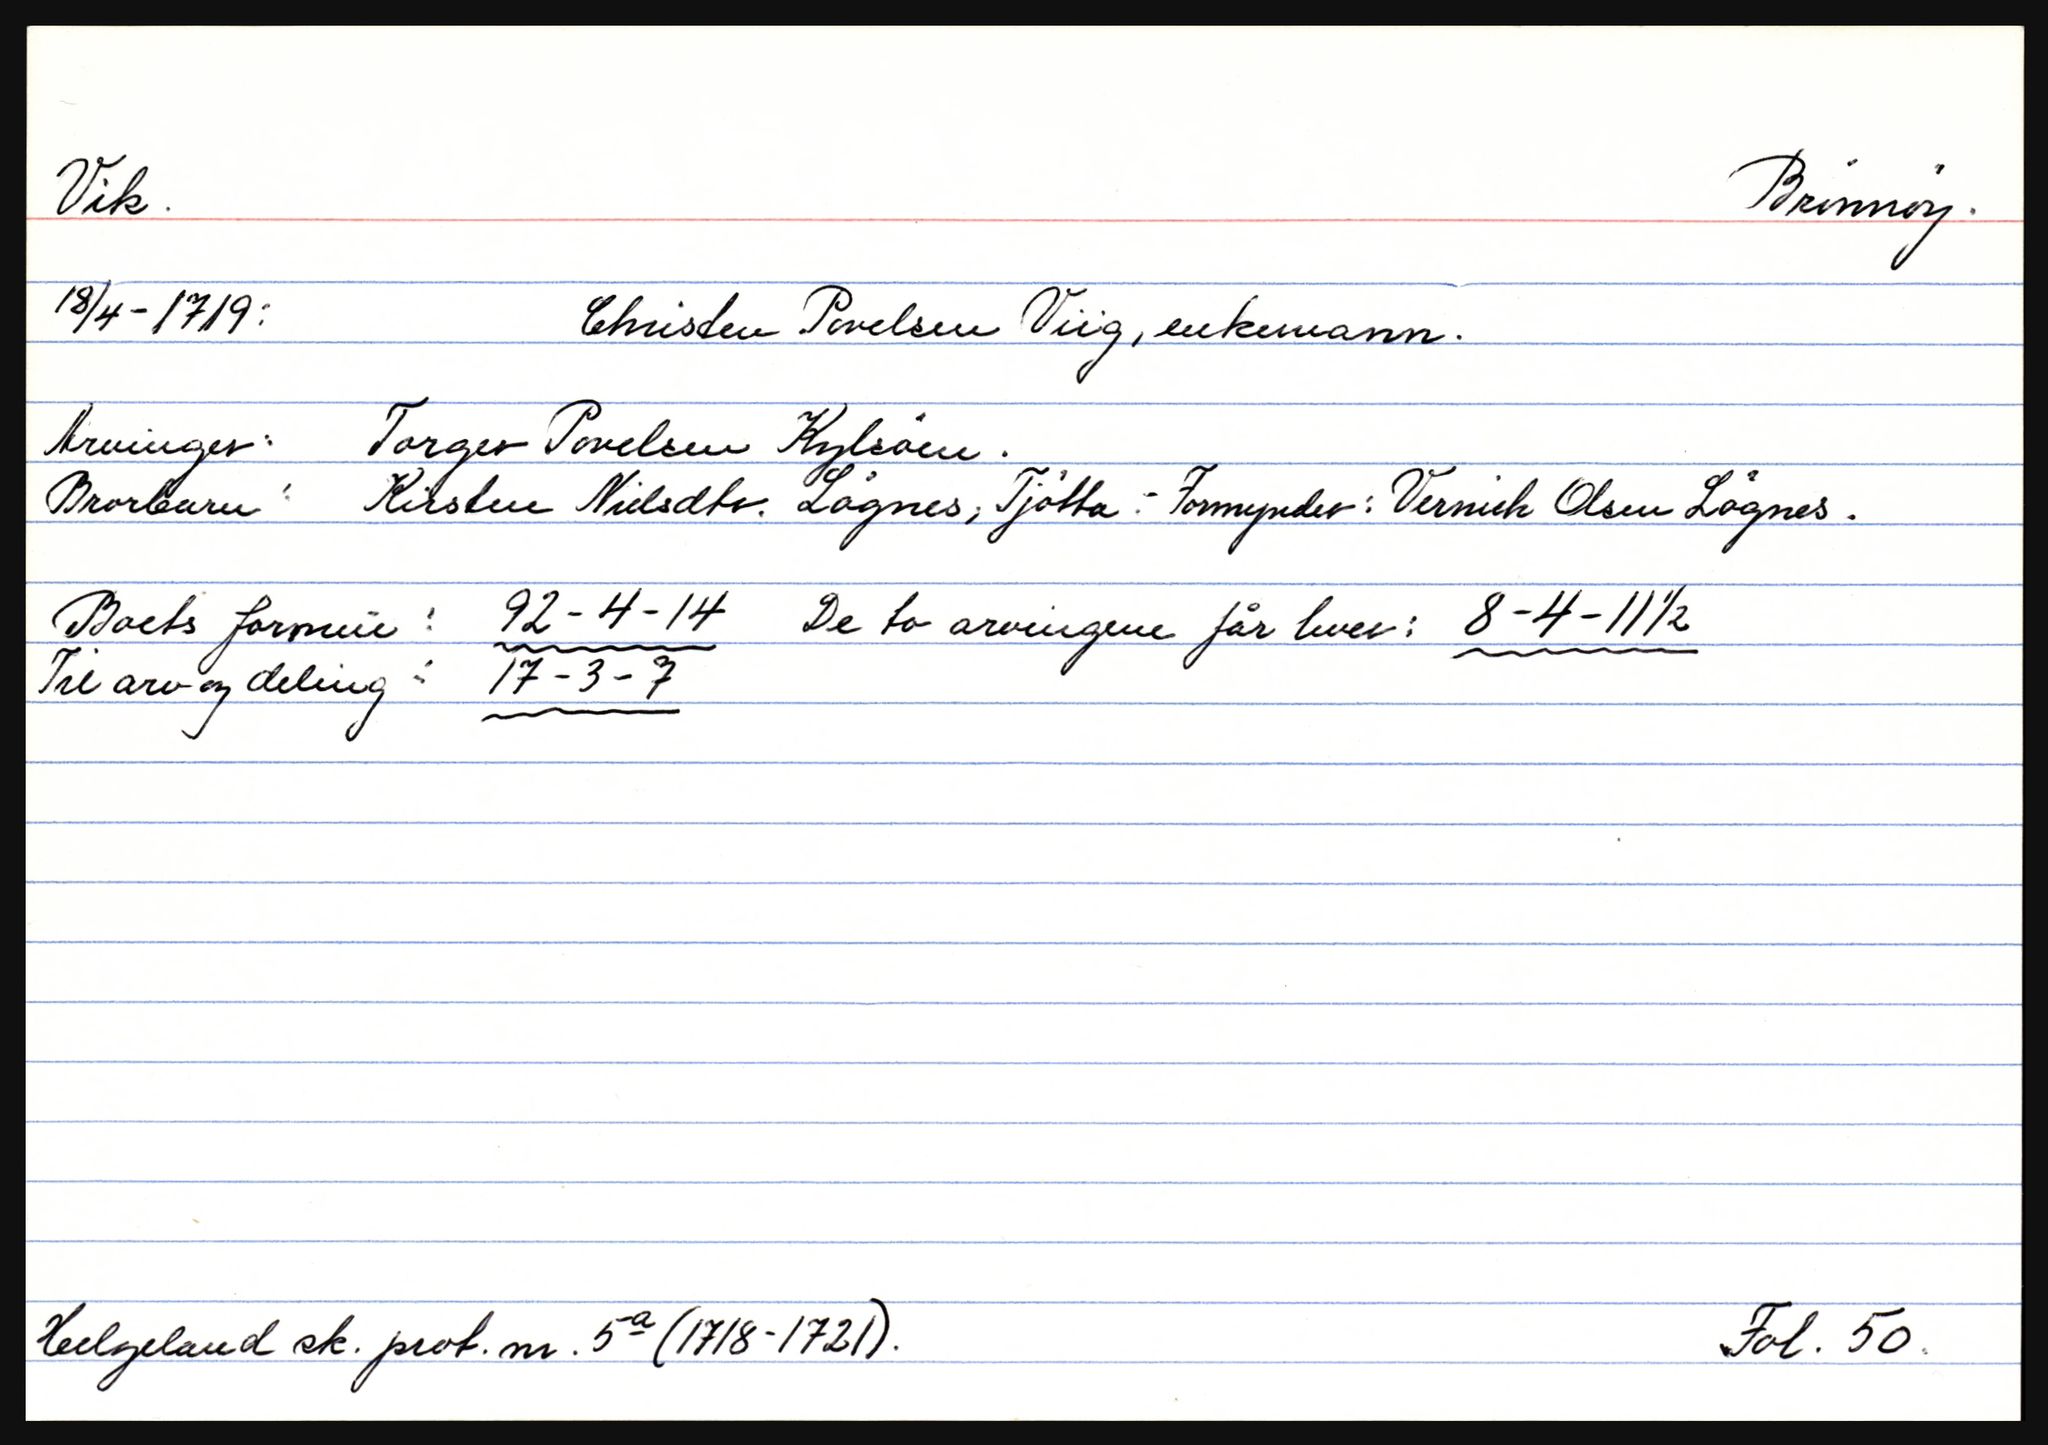 Vik. Brönnöy.
18/4-1719: Christen Povelsen Viig, enkemann.
Arvinger: Torger Povelsen Kylsöen.
Brorbarn: Kirsten Nielsdtr. Lögnes, Tjötta - Formynder: Vernich Olsen Lögnes.
Boets formue: 92-4-14 De to arvingene får hver: 8-4-11 1/2
Til arv og deling: 17-3-7
Helgeland sk. prot. nr. 5a (1718-1721). Fol. 50.